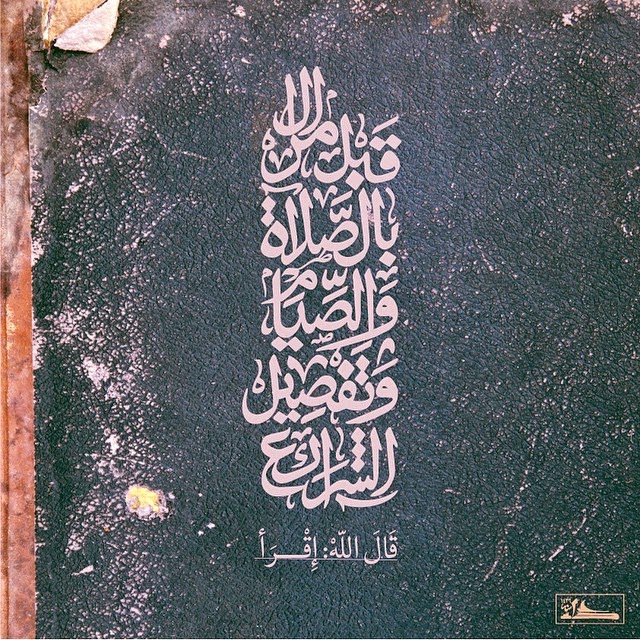 قَبل الأمر
بالصَّلاة
وَالصِّيَام
وَتَفصِيل
الشرائع
قَالَ اللّهْ: إِقْــرَأ